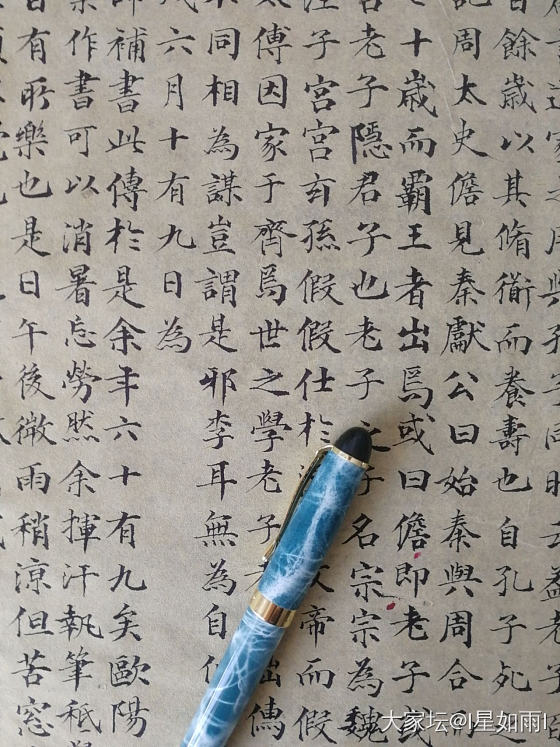 與孔子同時云蓋老
餘歲以其脩衟而養壽也自孔子死
記周太史儋見秦獻公曰始秦與周合
十歲而霸王者出焉或曰儋即老子或
老子隱君子也老子之子名宗宗為魏
子宮宮玄孫假假仕於文帝而假
太傅因家于齊焉世之學老子
同相為謀豈謂是邪李耳無為自
六月十有九日為
師補書此傳於是余年六十有九矣歐陽
作書可以消暑忘勞然余揮汗執筆秪
有所樂也是日午後微雨稍涼但苦窓
大家坛@l星如雨l